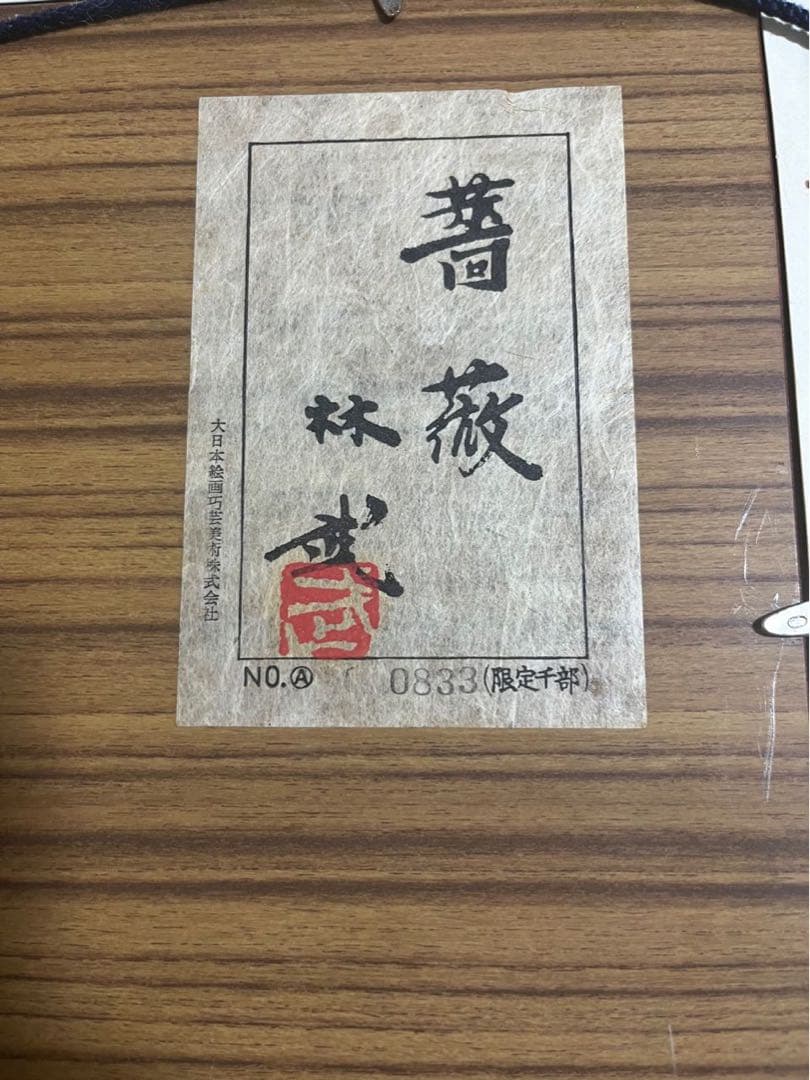 薔薇
林武
大日本絵画巧芸美術株式会社
NO.Ⓐ 0833(限定千部)